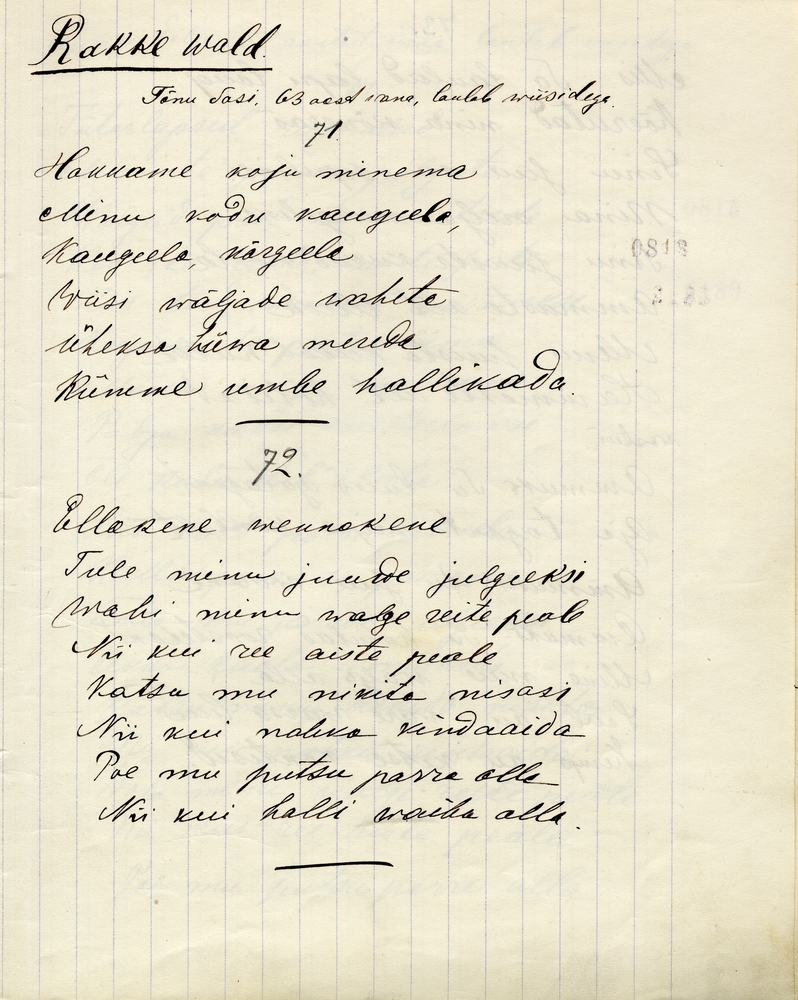 Rakke wald.
Tõnu Sasi, 63 aast. wana, laulab wiisidega.
71.
Hakkame koju minema
Minu kodu kaugeela,
Kaugeela, kõrgeela
Wiisi wäljade waheta
Üheksa hüwa mereda
Kümme umbe hallikada.
72.
Ellakene wennakene
Tule minu juurde julgeeksi
Wahi minu walge reite peale
Nii kui ree aiste peale
Katsu mu nikita nisasi
Nii kui nahka kindaaida
Poe mu putsu parra alla
Nii kui halli waiba alla.